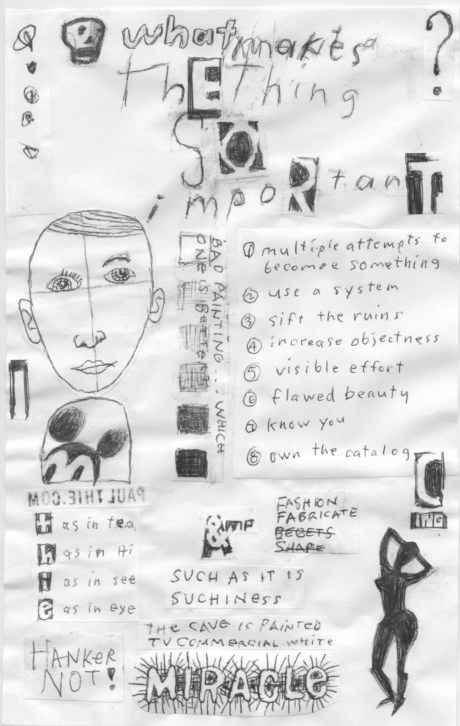 what makes a
THE Thing
SO
important
?
① multiple attempts to
become something
② use a system
③ sift the ruins
④ increase objectness
⑤ visible effort
⑥ flawed beauty
⑦ know you
⑧ own the catalog
BAD PAINTING... WHICH
ONE IS BETTER
PAULTHIE.COM
t as in tea,
h as in Hi
i as in see
e as in eye
&
AMP
FASHION
FABRICATE
BEGETS
SHAPE
SUCH AS IT IS
SUCHINESS
THE CAVE IS PAINTED
TV COMMERCIAL WHITE
HANKER
NOT!
MIRACLE